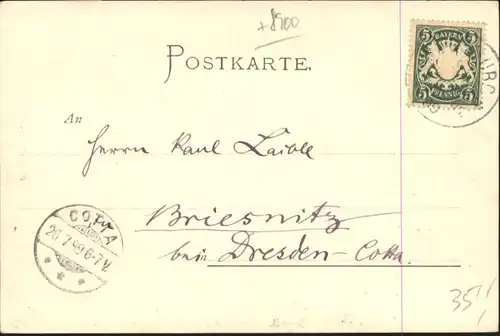 +8900
POSTKARTE.
BAYERN
5 5
PFENNIG
5 5
BURG
An
Herrn Paul Laible
in
Briesnitz
bein Dresden-Cotta
COTTA
26 7 99 6-7 V.
35